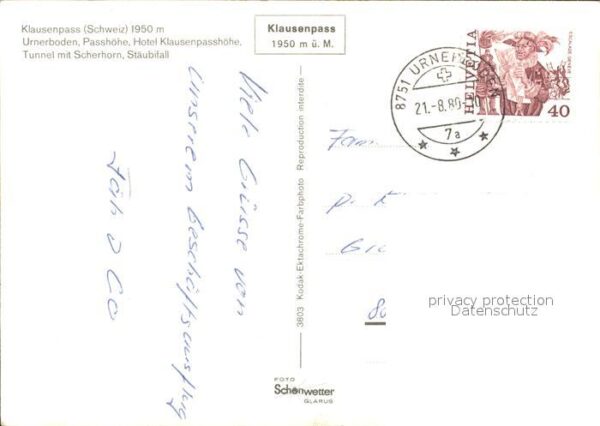 Klausenpass (Schweiz) 1950 m
Urnerboden, Passhöhe, Hotel Klausenpasshöhe,
Tunnel mit Scherhorn, Stäubifall
Klausenpass
1950 m ü. M.
Viele Grüsse von
unserem Geschäftsausflug
3803 Kodak-Ektachrome-Farbphoto Reproduction interdite
FOTO
Schönwetter
GLARUS
8751 URNERBODEN
21.-8.80
7a
HELVETIA
40
Fam
privacy protection
Datenschutz